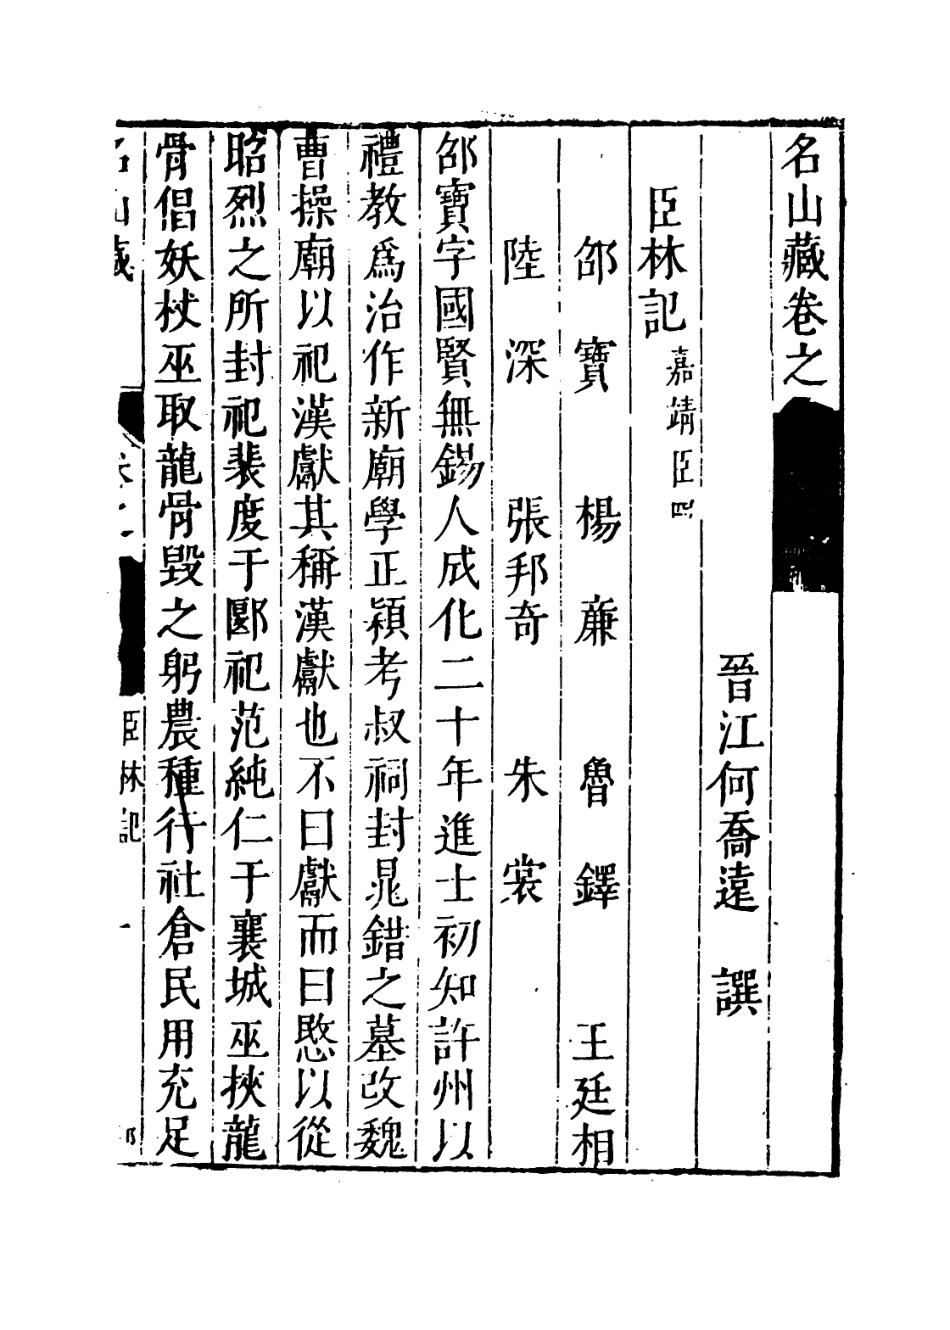 名山藏卷之
晉江何喬遠　譔
臣林記 嘉靖臣四
邵寶　楊廉　魯鐸　王廷相
陸深　張邦奇　朱裳
邵寶字國賢無錫人成化二十年進士初知許州以
禮教爲治作新廟學正潁考叔祠封晁錯之墓改魏
曹操廟以祀漢獻其稱漢獻也不曰獻而曰愍以從
昭烈之所封祀裴度于郾祀范純仁于襄城巫挾龍
骨倡妖杖巫取龍骨毀之躬農種行社倉民用充足
名山藏　臣林記　一